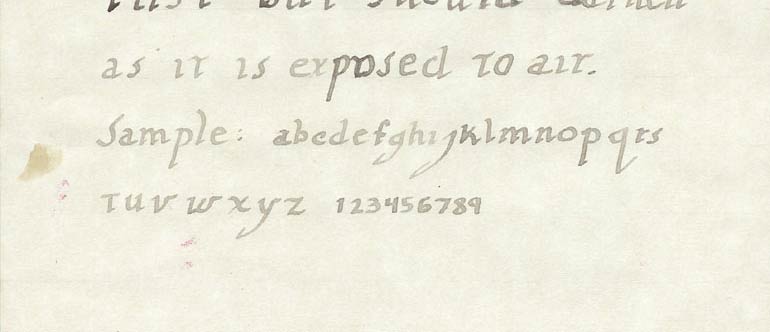 but should
as it is exposed to air.
Sample: abcdefghijklmnopqrs
tuvwxyz 123456789